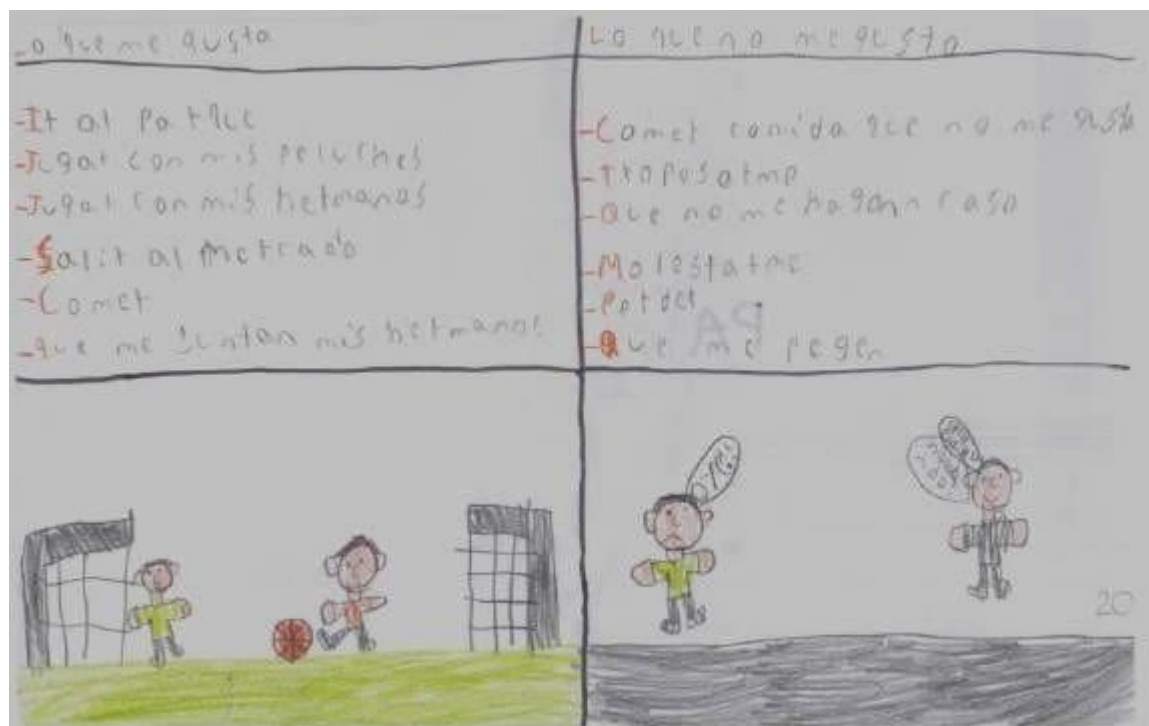 Lo que me gusta
-Ir al parque
-Jugar con mis peluches
-Jugar con mis hermanos
-Salir al mercado
-Comer
-que me mis hermanos
Lo que no me gusta
-Comer comida que no me gusta
-Que no me hagan caso
-Molestarme
-Perder
-Que me pegen
20